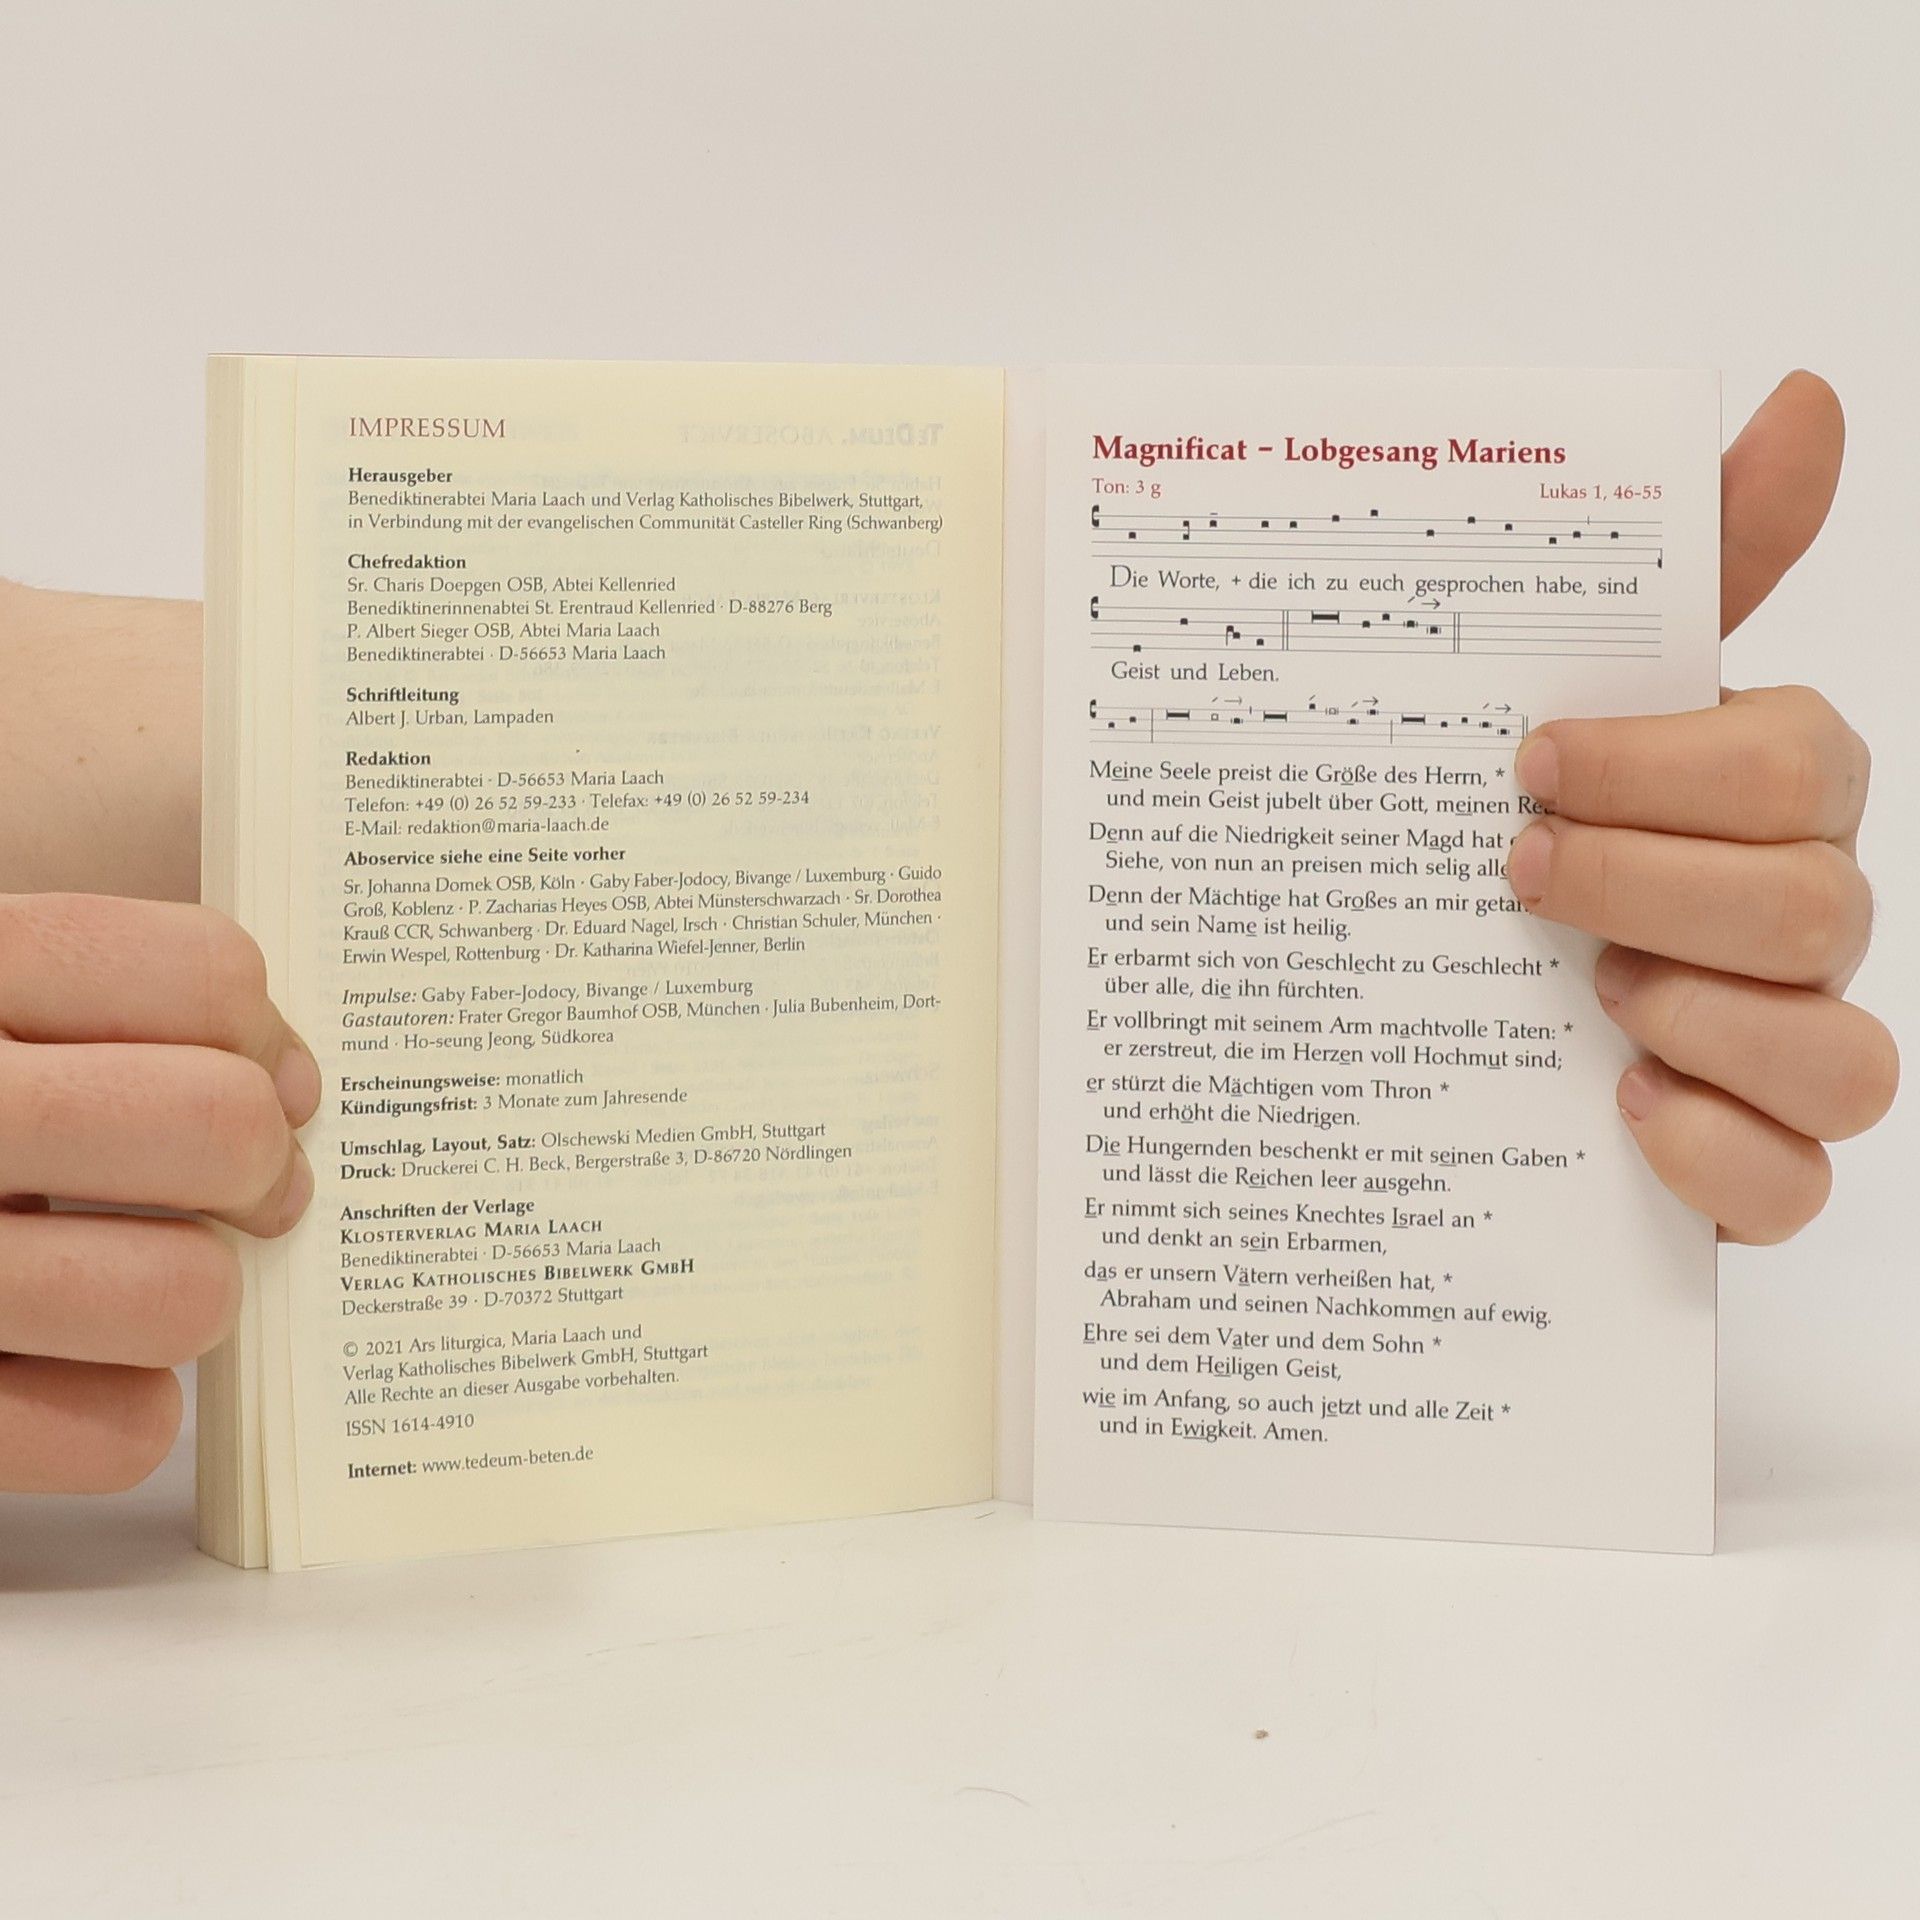 IMPRESSUM
Herausgeber
Benediktinerabtei Maria Laach und Verlag Katholisches Bibelwerk, Stuttgart,
in Verbindung mit der evangelischen Communität Casteller Ring (Schwanberg)
Chefredaktion
Sr. Charis Doepgen OSB, Abtei Kellenried
Benediktinerinnenabtei St. Erentraud Kellenried · D-88276 Berg
P. Albert Sieger OSB, Abtei Maria Laach
Benediktinerabtei · D-56653 Maria Laach
Schriftleitung
Albert J. Urban, Lampaden
Redaktion
Benediktinerabtei · D-56653 Maria Laach
Telefon: +49 (0) 26 52 59-233 · Telefax: +49 (0) 26 52 59-234
E-Mail: redaktion@maria-laach.de
Aboservice siehe eine Seite vorher
Sr. Johanna Domek OSB, Köln · Gaby Faber-Jodocy, Bivange / Luxemburg · Guido
Groß, Koblenz · P. Zacharias Heyes OSB, Abtei Münsterschwarzach · Sr. Dorothea
Krauß CCR, Schwanberg · Dr. Eduard Nagel, Irsch · Christian Schuler, München ·
Erwin Wespel, Rottenburg · Dr. Katharina Wiefel-Jenner, Berlin
Impulse: Gaby Faber-Jodocy, Bivange / Luxemburg
Gastautoren: Frater Gregor Baumhof OSB, München · Julia Bubenheim, Dort-
mund · Ho-seung Jeong, Südkorea
Erscheinungsweise: monatlich
Kündigungsfrist: 3 Monate zum Jahresende
Umschlag, Layout, Satz: Olschewski Medien GmbH, Stuttgart
Druck: Druckerei C. H. Beck, Bergerstraße 3, D-86720 Nördlingen
Anschriften der Verlage
KLOSTERVERLAG MARIA LAACH
Benediktinerabtei · D-56653 Maria Laach
VERLAG KATHOLISCHES BIBELWERK GMBH
Deckerstraße 39 · D-70372 Stuttgart
© 2021 Ars liturgica, Maria Laach und
Verlag Katholisches Bibelwerk GmbH, Stuttgart
Alle Rechte an dieser Ausgabe vorbehalten.
ISSN 1614-4910
Internet: www.tedeum-beten.de
Magnificat – Lobgesang Mariens
Ton: 3 g Lukas 1, 46-55
Die Worte, + die ich zu euch gesprochen habe, sind
Geist und Leben.
Meine Seele preist die Größe des Herrn, *
und mein Geist jubelt über Gott, meinen
Denn auf die Niedrigkeit seiner Magd hat
Siehe, von nun an preisen mich selig
Denn der Mächtige hat Großes an mir
und sein Name ist heilig.
Er erbarmt sich von Geschlecht zu Geschlecht *
über alle, die ihn fürchten.
Er vollbringt mit seinem Arm machtvolle Taten: *
er zerstreut, die im Herzen voll Hochmut sind;
er stürzt die Mächtigen vom Thron *
und erhöht die Niedrigen.
Die Hungernden beschenkt er mit seinen Gaben *
und lässt die Reichen leer ausgehn.
Er nimmt sich seines Knechtes Israel an *
und denkt an sein Erbarmen,
das er unsern Vätern verheißen hat, *
Abraham und seinen Nachkommen auf ewig.
Ehre sei dem Vater und dem Sohn *
und dem Heiligen Geist,
wie im Anfang, so auch jetzt und alle Zeit *
und in Ewigkeit. Amen.